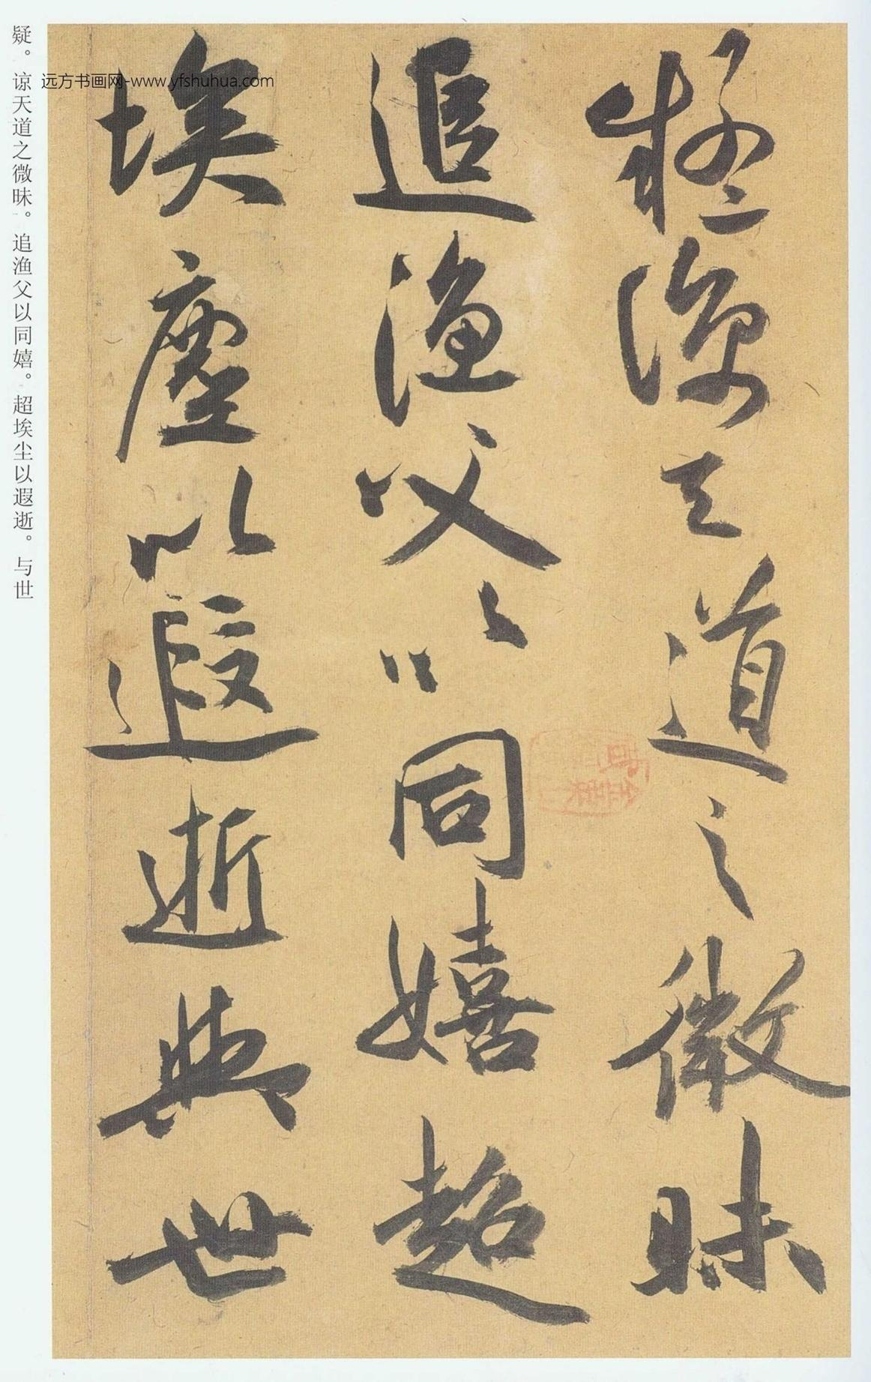 疑谅天道之微昧
追渔父以同嬉超
埃尘以遐逝与世
疑。谅天道之微昧。追渔父以同嬉。超埃尘以遐逝。与世
远方书画网-www.yfshuhua.com